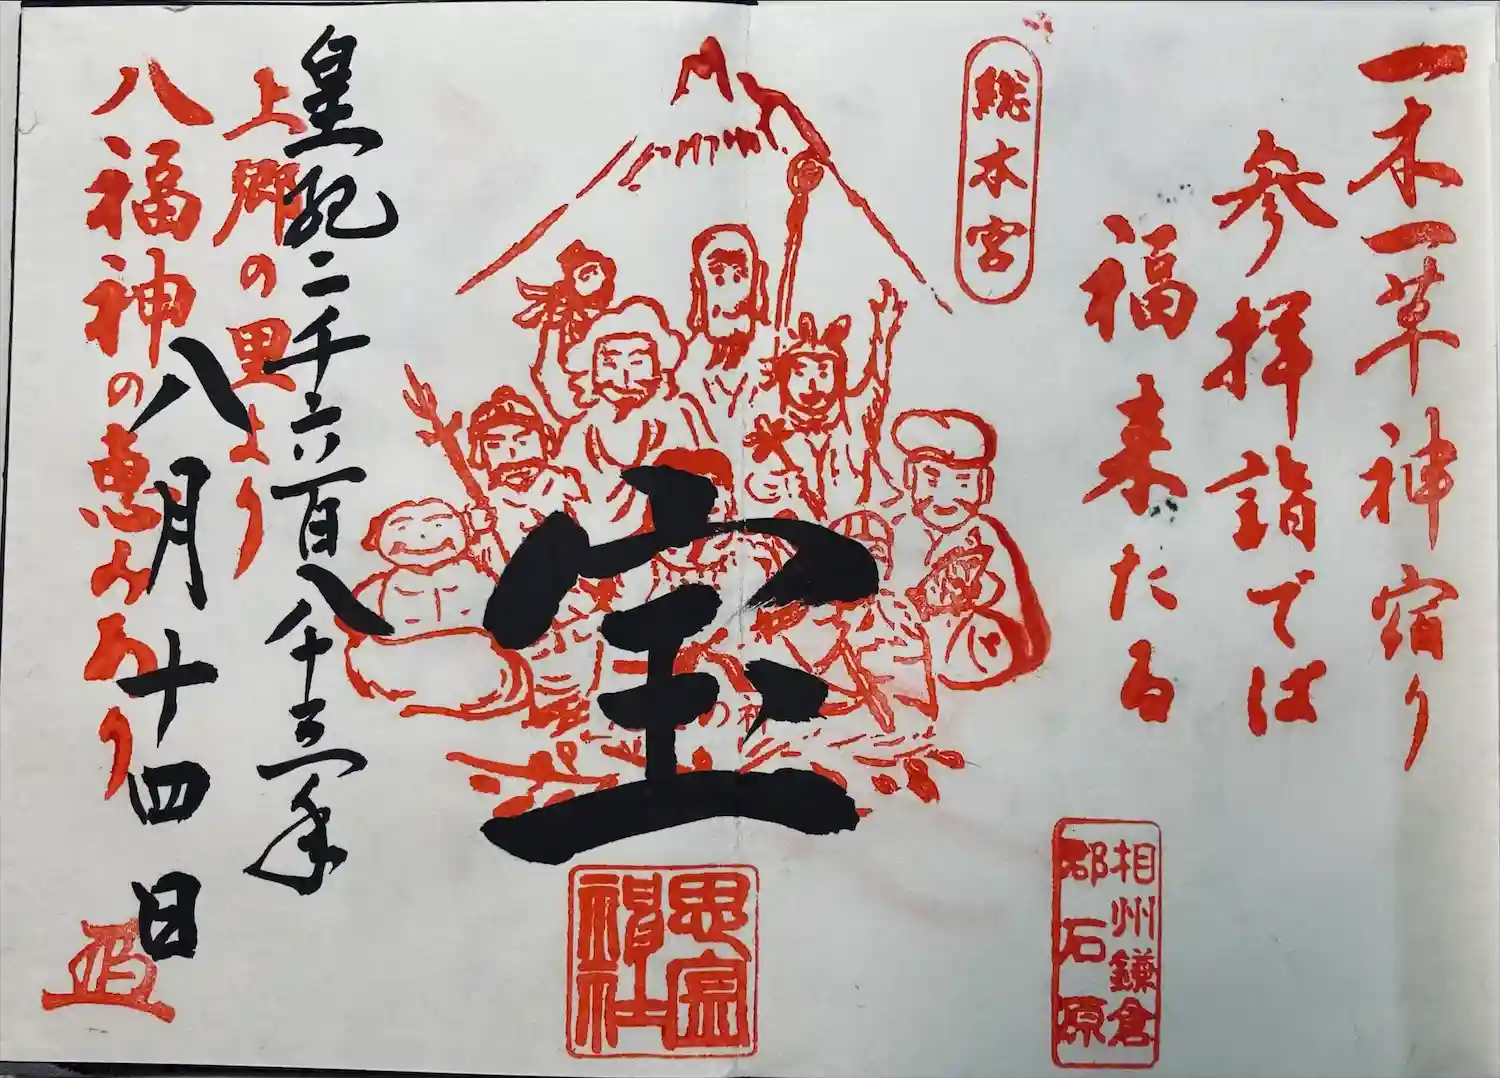 一木一草神宿り
参拝詣では
福来たる
総本宮
相州鎌倉
郡石原
宝
の神
思金
神社
皇紀二千六百八十三年
上郷の里より
八月十四日
八福神の恵みあり